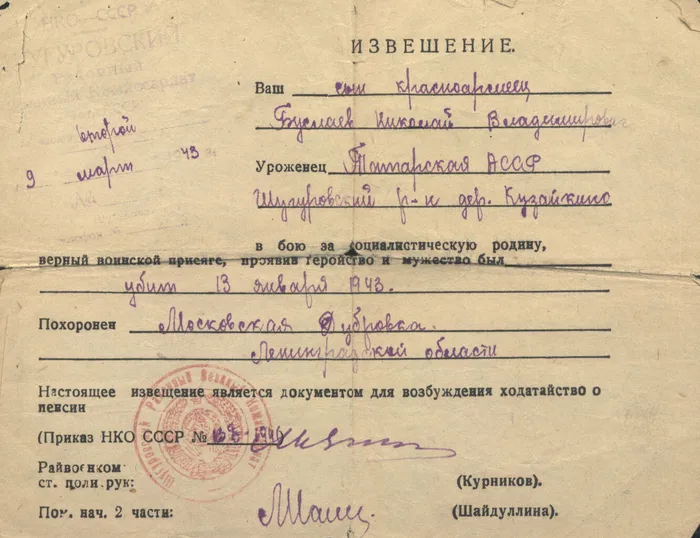 НКО–СССР
ШУГУРОВСКИЙ
Районный
Военный Комиссариат
второй
9 март 1943 г.
ИЗВЕШЕНИЕ.
Ваш сын красноармеец
Буслаев Николай Владимирович
Уроженец Татарская АССР
Шугуровский р-н дер. Кузайкино
в бою за социалистическую родину,
верный воинской присяге, проявив геройство и мужество был
убит 13 января 1943.
Похоронен Московская Дубровка.
Ленинградской области
Настоящее извещение является документом для возбуждения ходатайство о
пенсии
(Приказ НКО СССР №
Райвоенком
ст. политрук: (Курников).
Пом. нач. 2 части: (Шайдуллина).